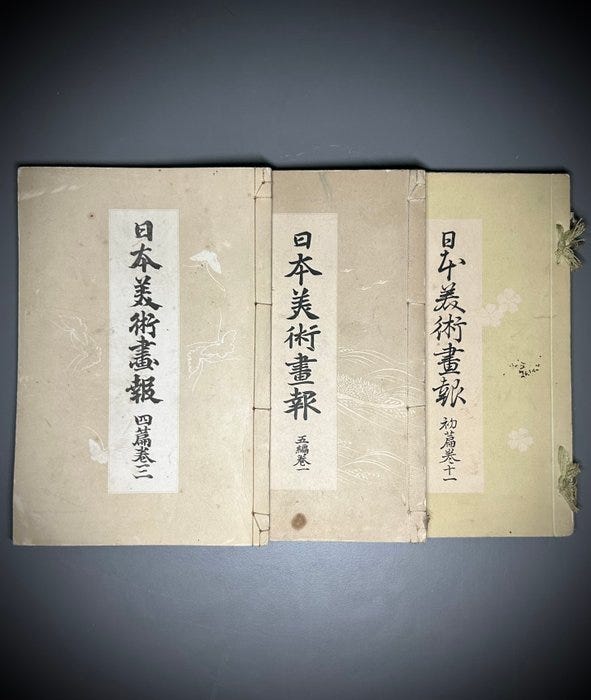 日本美術畫報 初篇卷十一
日本美術畫報 五編卷一
日本美術畫報 四篇卷三